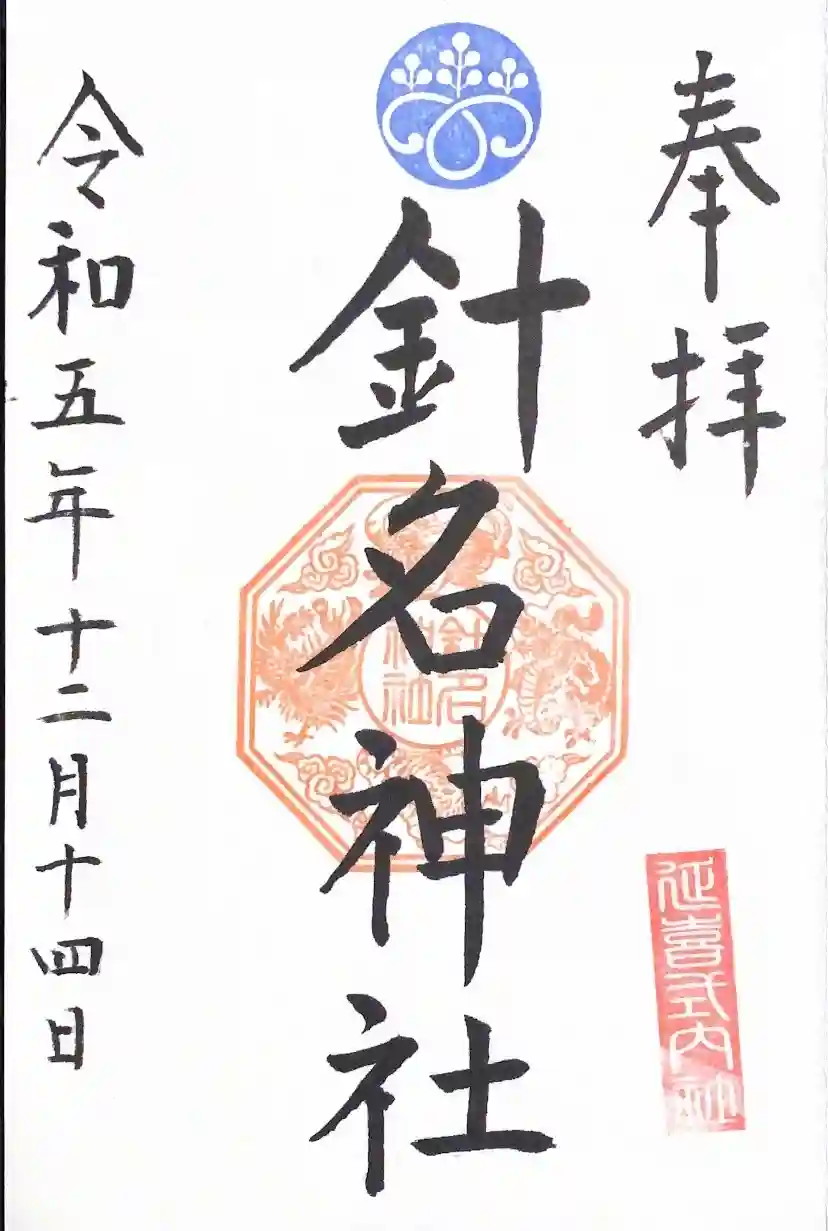 奉拝
延喜式内社
針名神社
針名神社
令和五年十二月十四日